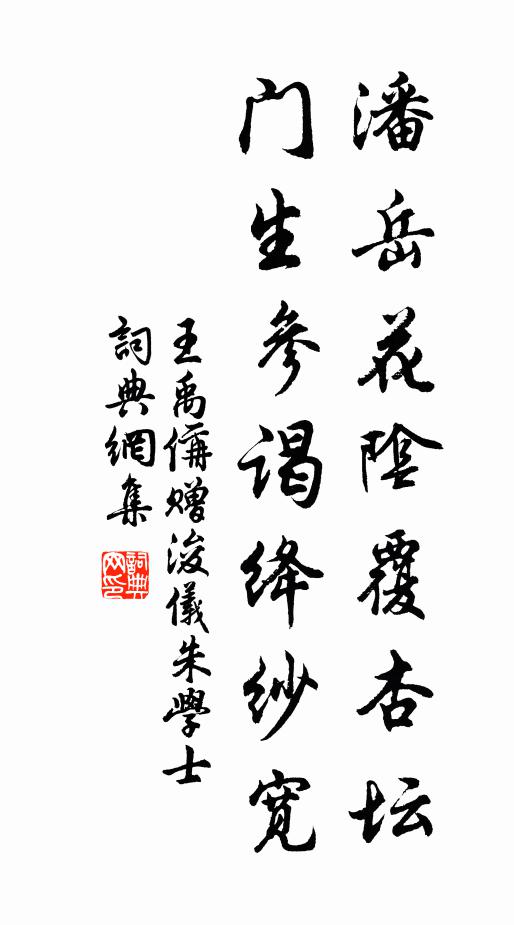 潘岳花陰覆杏坛
门生參谒绛纱宽
王禹偁赠浚儀朱學士
詞典網集
詞典网印